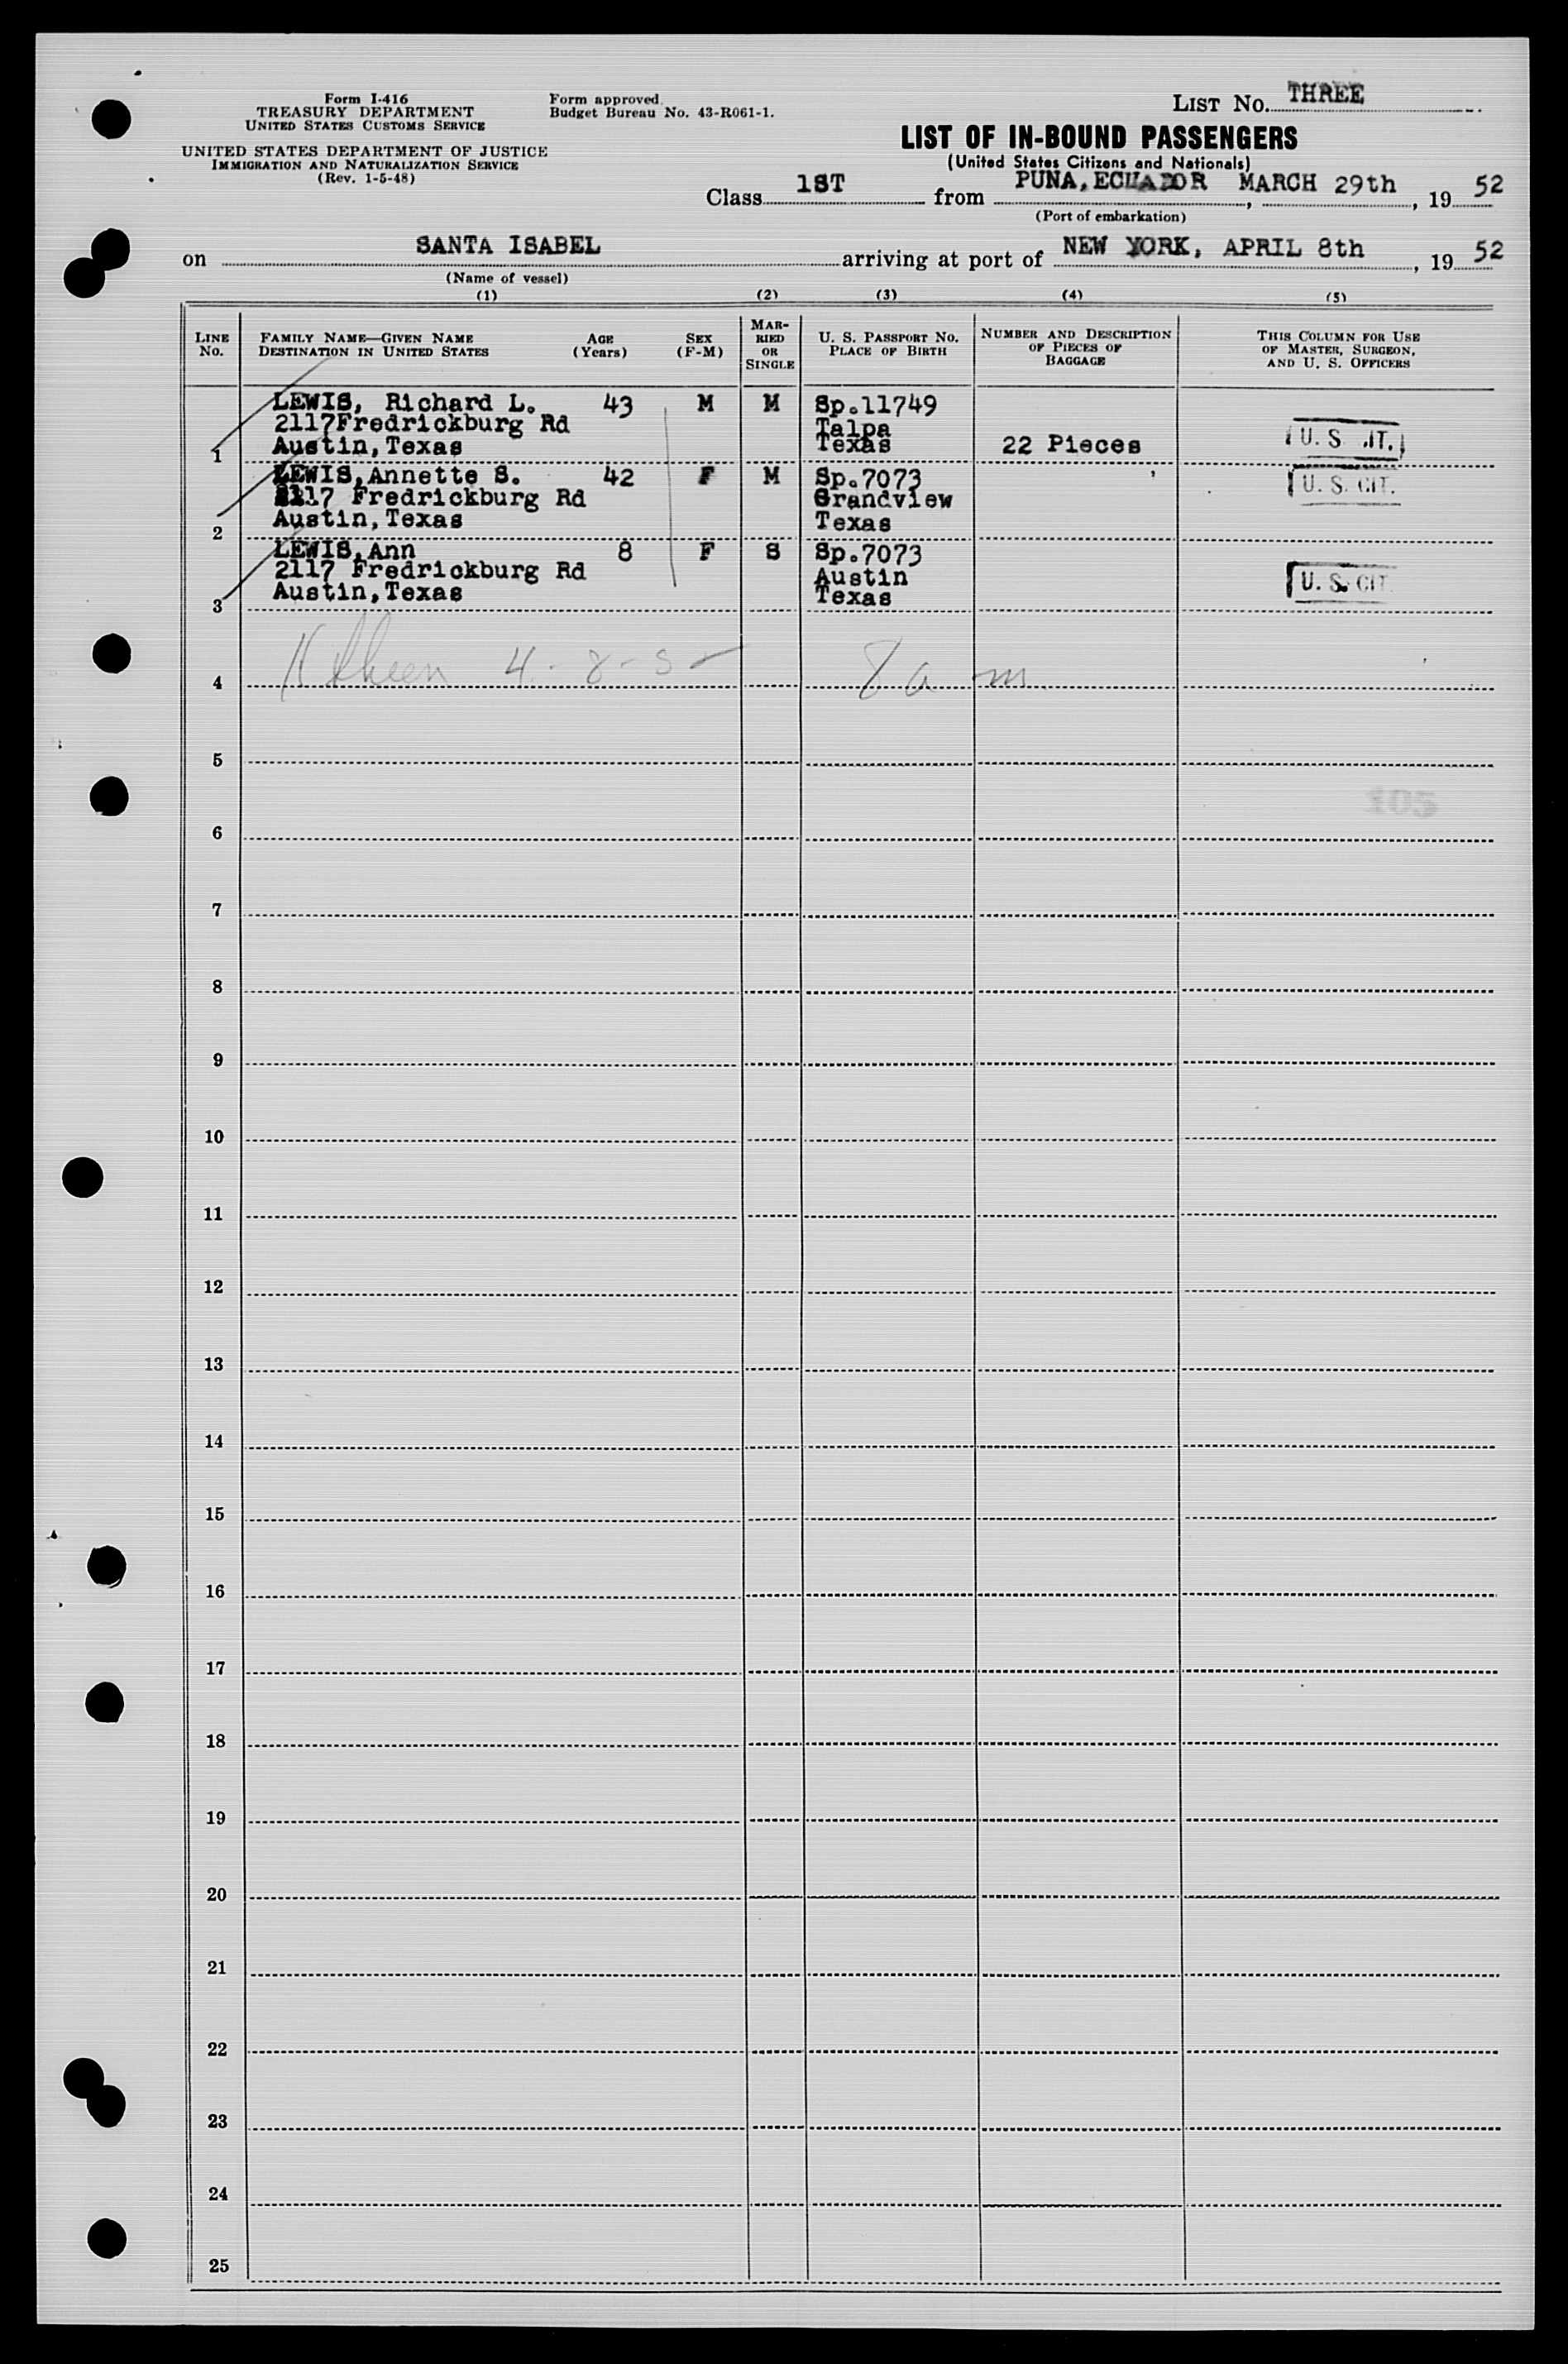 Form I-416
TREASURY DEPARTMENT
UNITED STATES CUSTOMS SERVICE
UNITED STATES DEPARTMENT OF JUSTICE
IMMIGRATION AND NATURALIZATION SERVICE
(Rev. 1-5-48)
Form approved.
Budget Bureau No. 43-R061-1.
LIST NO. THREE
LIST OF IN-BOUND PASSENGERS
(United States Citizens and Nationals)
Class 1ST from PUNA, ECUADOR, MARCH 29th, 19 52
(Port of embarkation)
on SANTA ISABEL arriving at port of NEW YORK, APRIL 8th, 19 52
(Name of vessel)
(1) (2) (3) (4) (5)
LINE NO.
FAMILY NAME—GIVEN NAME
DESTINATION IN UNITED STATES
AGE
(Years)
SEX
(F-M)
MAR-
RIED
OR
SINGLE
U. S. PASSPORT NO.
PLACE OF BIRTH
NUMBER AND DESCRIPTION
OF PIECES OF
BAGGAGE
THIS COLUMN FOR USE
OF MASTER, SURGEON,
AND U. S. OFFICERS
LEWIS, Richard L. 43 M M Sp.11749
2117Fredrickburg Rd Talpa
1 Austin, Texas Texas 22 Pieces U. S. IT.
LEWIS, Annette S. 42 F M Sp.7073
2117 Fredrickburg Rd Grandview U. S. CIT.
2 Austin, Texas Texas
LEWIS, Ann 8 F S Sp.7073
2117 Fredrickburg Rd Austin U. S. CIT.
3 Austin, Texas Texas
4 4-8-5 8 a m
5
105
6
7
8
9
10
11
12
13
14
15
16
17
18
19
20
21
22
23
24
25